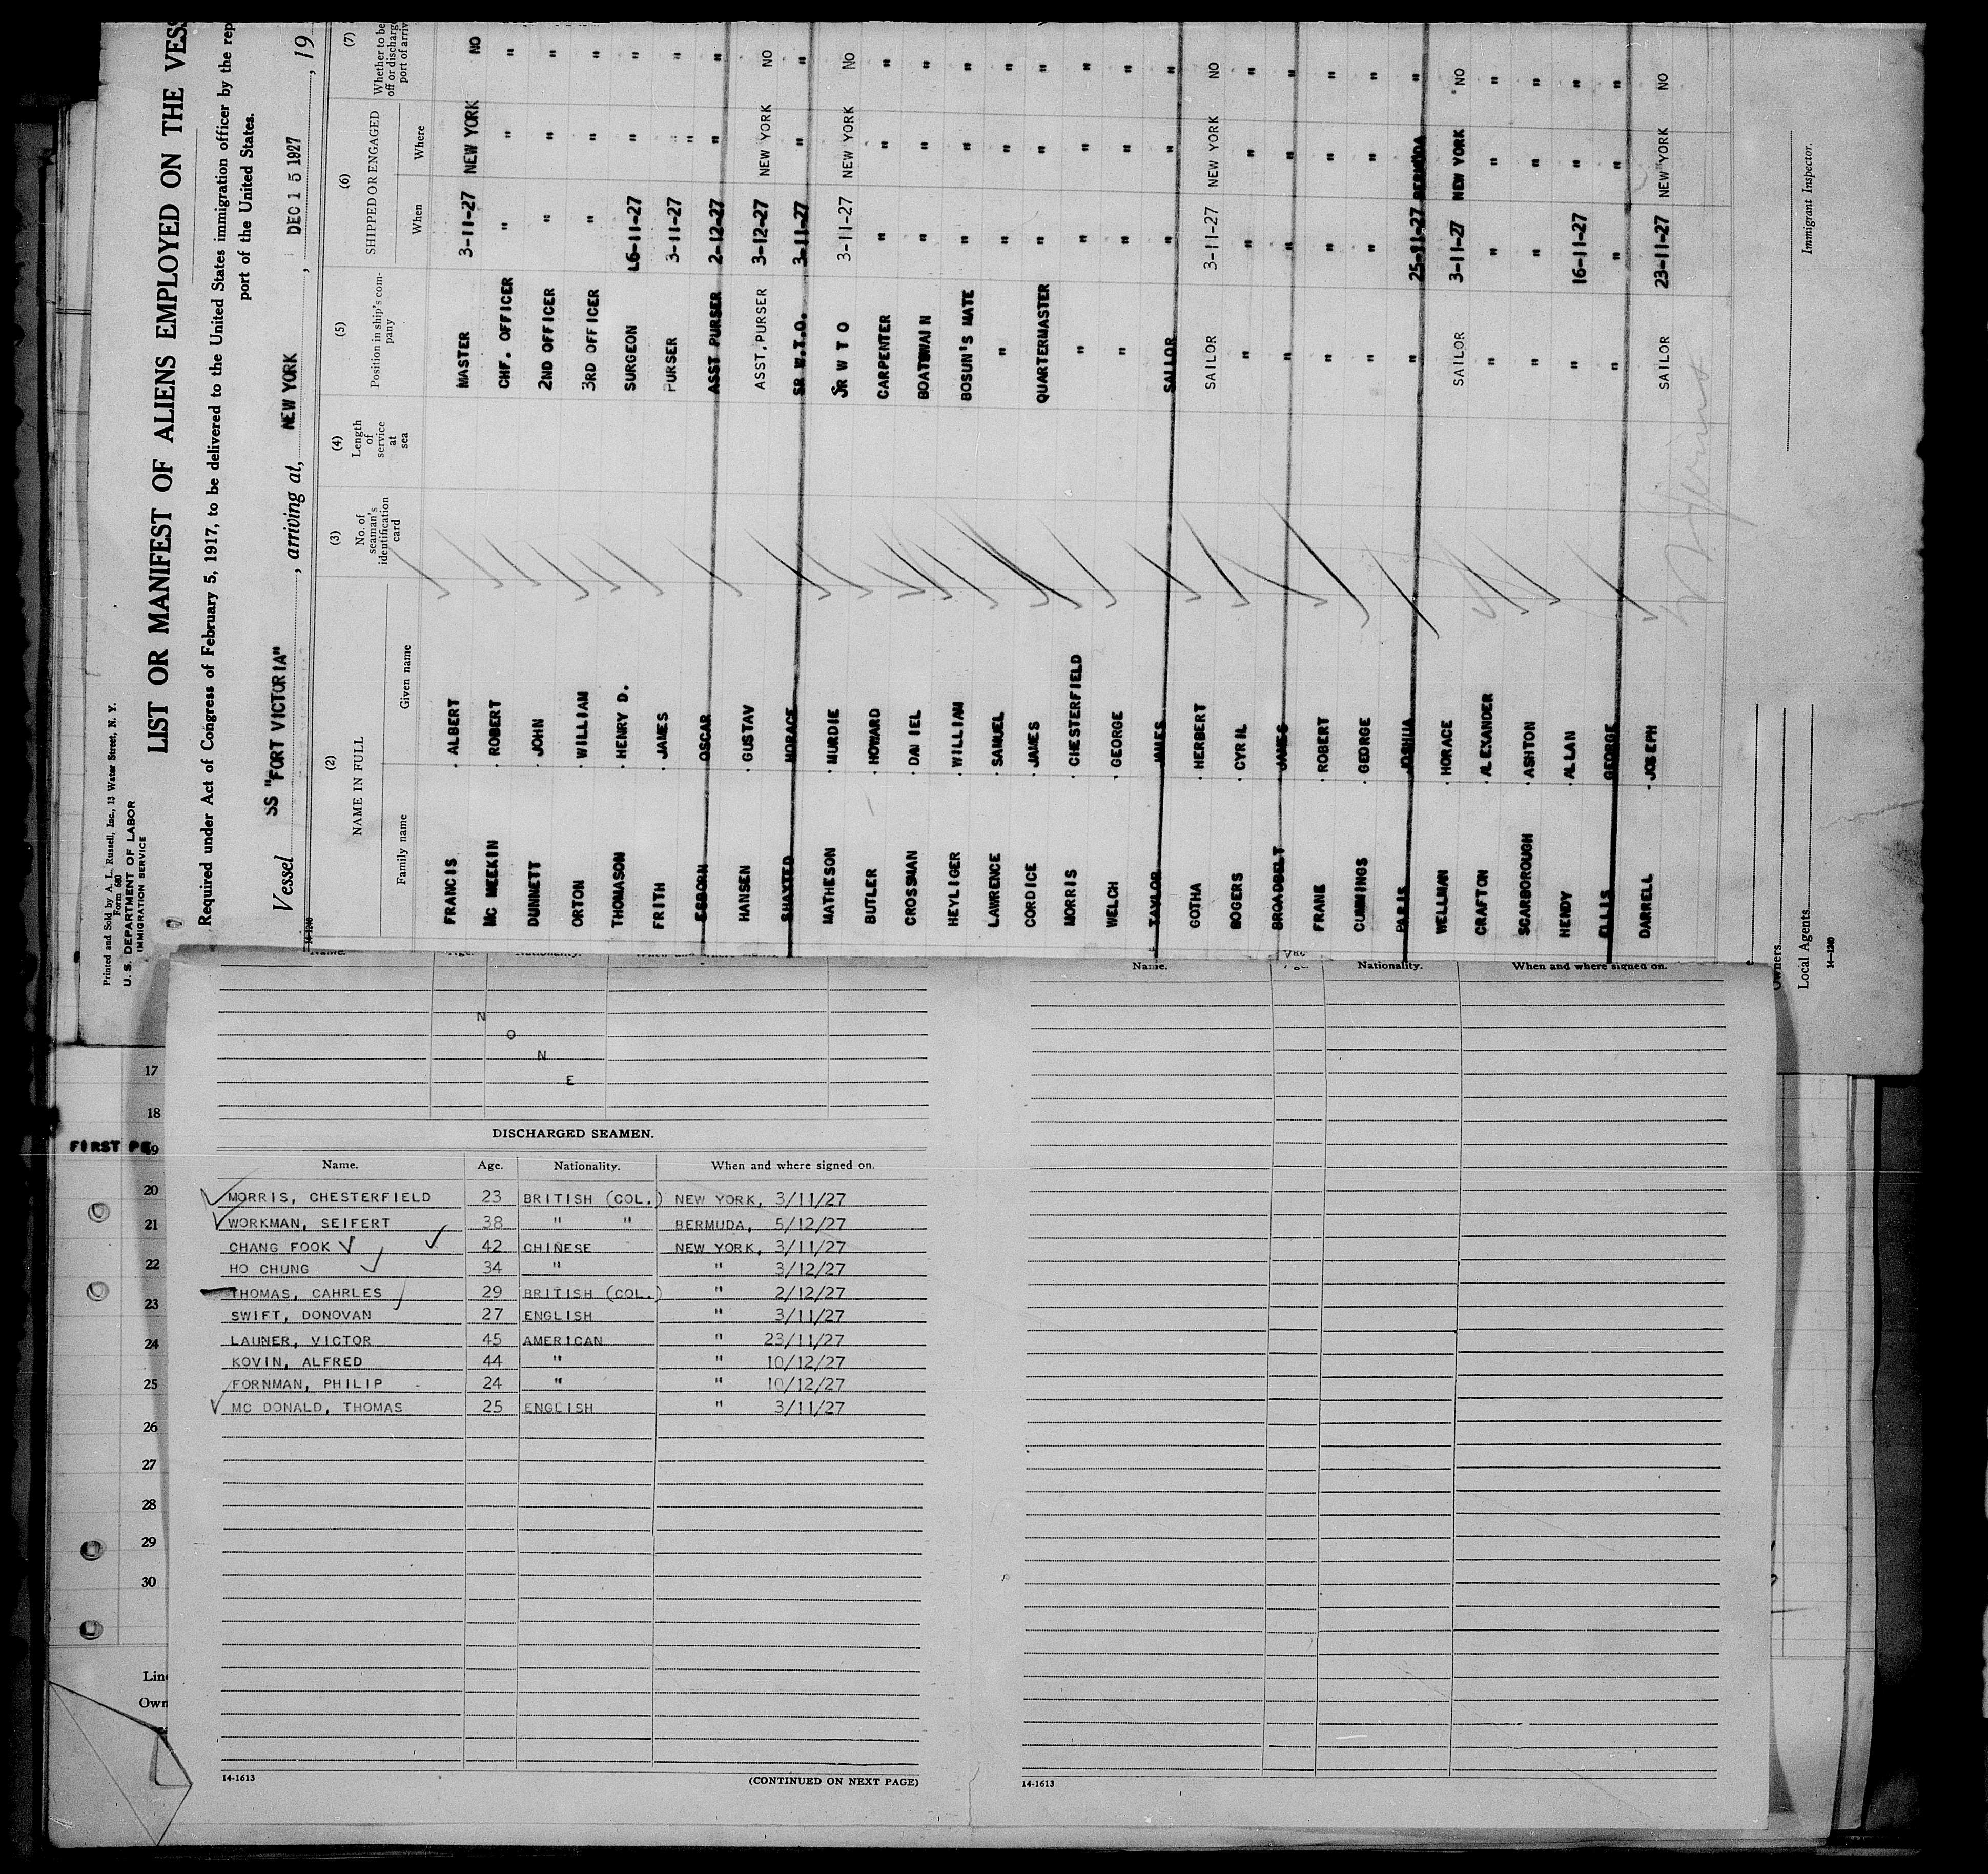 Printed and Sold by A. L. Russell, Inc., 13 Water Street, N. Y.
Form 680
U. S. DEPARTMENT OF LABOR
IMMIGRATION SERVICE
LIST OR MANIFEST OF ALIENS EMPLOYED ON THE VES
Required under Act of Congress of February 5, 1917, to be delivered to the United States immigration officer by the rep
port of the United States.
Vessel SS "FORT VICTORIA", arriving at, NEW YORK, DEC 15 1927, 19
14-1240
(2) (3) (4) (5) (6) (7)
NAME IN FULL No. of seaman's identification card Length of service at sea Position in ship's company SHIPPED OR ENGAGED Whether to be
off or discharge
port of arriv
Family name Given name When Where
FRANCIS ALBERT MASTER 3-11-27 NEW YORK NO
MC MEEKIN ROBERT CHF. OFFICER " " "
DUNNETT JOHN 2ND OFFICER " " "
ORTON WILLIAM 3RD OFFICER " " "
THOMASON HENRY D. SURGEON 16-11-27 " "
FRITH JAMES PURSER 3-11-27 " "
ESBORN OSCAR ASST PURSER 2-12-27 " "
HANSEN GUSTAV ASST.PURSER 3-12-27 NEW YORK NO
SHAXTED HORACE SR W.T.O. 3-11-27 " "
MATHESON MURDIE SR W T O 3-11-27 NEW YORK NO
BUTLER HOWARD CARPENTER " " "
CROSMAN DANIEL BOATSWAIN " " "
HEYLIGER WILLIAM BOSUN'S MATE " " "
LAWRENCE SAMUEL " " " "
CORDICE JAMES QUARTERMASTER " " "
MORRIS CHESTERFIELD " " " "
WELCH GEORGE " " " "
TAYLOR JAMES SAILOR " " "
GOTHA HERBERT SAILOR 3-11-27 NEW YORK NO
ROGERS CYRIL " " " "
BROADBELT JAMES " " " "
FRANE ROBERT " " " "
CUMMINGS GEORGE " " " "
PARIS JOSHUA " 25-11-27 BERMUDA "
WELLMAN HORACE SAILOR 3-11-27 NEW YORK NO
CRAFTON ALEXANDER " " " "
SCARBOROUGH ASHTON " " " "
HENDY ALLAN " 16-11-27 " "
ELLIS GEORGE " " " "
DARRELL JOSEPH SAILOR 23-11-27 NEW YORK NO
Immigrant Inspector.
Owners
Local Agents
14-1240
Name. Age. Nationality.
N
O
N
E
DISCHARGED SEAMEN.
Name. Age. Nationality. When and where signed on.
MORRIS, CHESTERFIELD 23 BRITISH (COL.) NEW YORK, 3/11/27
WORKMAN, SEIFERT 38 " " BERMUDA, 5/12/27
CHANG FOOK 42 CHINESE NEW YORK, 3/11/27
HO CHUNG 34 " " 3/12/27
THOMAS, CAHRLES 29 BRITISH (COL.) " 2/12/27
SWIFT, DONOVAN 27 ENGLISH " 3/11/27
LAUNER, VICTOR 45 AMERICAN " 23/11/27
KOVIN, ALFRED 44 " " 10/12/27
FORNMAN, PHILIP 24 " " 10/12/27
MC DONALD, THOMAS 25 ENGLISH " 3/11/27
14-1613
(CONTINUED ON NEXT PAGE)
Name. Nationality. When and where signed on.
14-1613
17
18
FIRST PE
19
20
21
22
23
24
25
26
27
28
29
30
Lin
Own